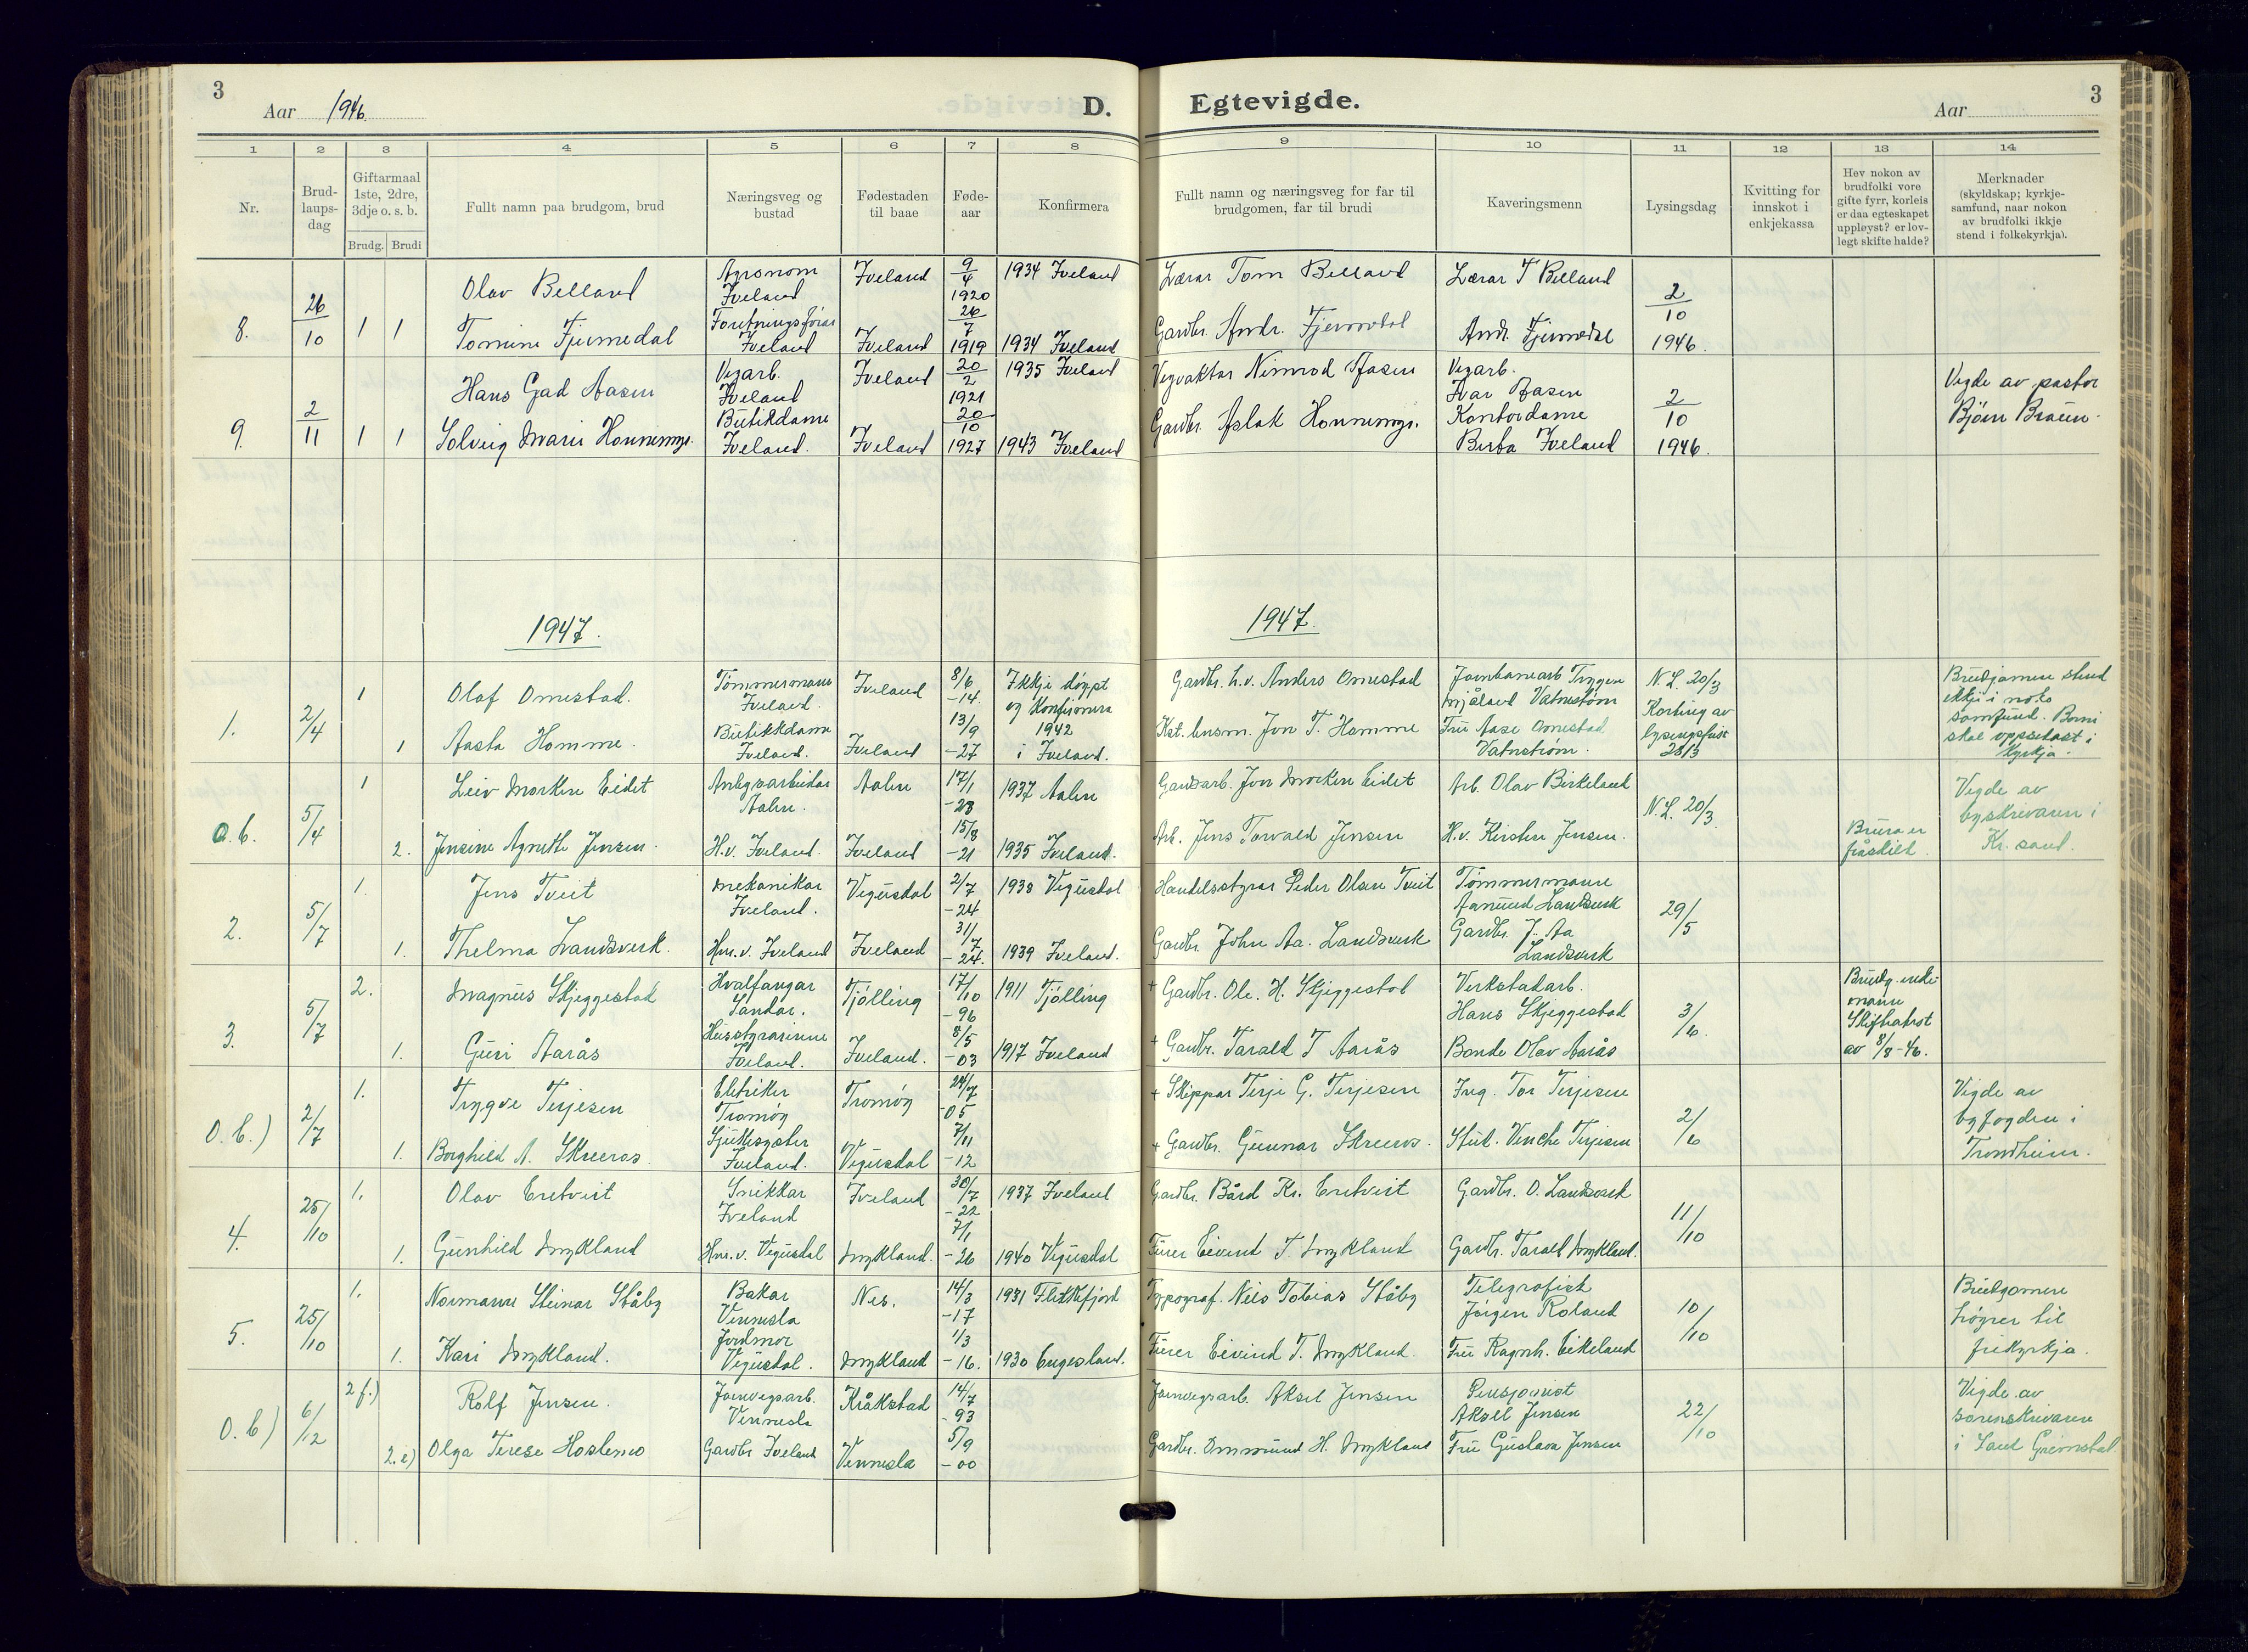 3
Aar 1946.
D.
Egtevigde.
Aar
3
1 2 3 4 5 6 7 8 9 10 11 12 13 14
Nr.
Brud-
laups-
dag
Giftarmaal
1ste, 2dre,
3dje o. s. b.
Brudg. Brudi
Fullt namn paa brudgom, brud
Næringsveg og
bustad
Fødestaden
til baae
Føde-
aar
Konfirmera
Fullt namn og næringsveg for far til
brudgomen, far til brudi
Kaveringsmenn
Lysingsdag
Kvitting for
innskot i
enkjekassa
Hev nokon av
brudfolki vore
gifte fyrr, korleis
er daa egteskapet
uppløyst? er lov-
legt skifte halde?
Merknader
(skyldskap; kyrkje-
samfund, naar nokon
av brudfolki ikkje
stend i folkekyrkja).
8. 26/10 1 1
Olav Belland
Agronom
Iveland
Iveland
9/4
1920
1934 Iveland
Lærar Tom Belland
Lærar T Belland
2/10
1946.
Tomine Fjermedal
Iveland
Iveland
26/7
1919
1934 Iveland
Gardbr. Andr. Fjermedal
Andr. Fjermedal
9. 2/11 1 1
Hans Gad Aasen
Vegarb.
Iveland
Iveland
20/2
1921
1935 Iveland
Vegvaktar Nimrod Aasen
Vegarb.
Ivar Aasen
2/10
1946.
Vigde av pastor
Bjørn Braüen.
Solveig Marie Honnemyr.
Bütikdame
Iveland.
Iveland
20/10
1927
1943 Iveland
Gardbr. Aslak Honnemyr.
Kontordame
Berta Iveland
1947.
1947.
1. 2/4 1
Olaf Omestad.
Tømmermann
Iveland.
Iveland
8/6
-14.
Ikkje døypt
og konfirmera
Gardbr. h.v. Anders Omestad
Jarnbanearb Trygve
Mjåland Vatnestrøm
N.L. 20/3
Korting av
lysingsfrist
28/3
Brudgomen stend
ikkje i noko
samfünd. Borni
skal oppsedast i
kyrkja.
1
Aasta Homme.
Bütikkdame
Iveland.
Iveland
13/9
-27
1942
i Iveland.
Kst. lensm. Jon T. Homme
Frü Aase Omestad
Vatnstrøm.
o.b. 5/4 1
Leiv Morken Eidet
Anlegsarbeidar
Aalen.
Aalen
17/1
-23
1937 Aalen
Gardsarb. Jon Morken Eidet
Arb. Olav Birkeland
N.L. 20/3.
Vigde av
byskrivaren i
Kr. sand.
2.
Jensine Agnethe Jensen.
H.v. Iveland.
Iveland
15/8
-21
1935 Iveland.
Arb. Jens Torvald Jensen
H.v. Kirsten Jensen.
Brura er
fråskild.
2. 5/7 1.
Jens Tveit
Mekanikar
Iveland.
Vegüsdal
2/7
-24
1938 Vegüsdal
Handelsstyrar Peder Olsen Tveit
Tømmermann
Aanünd Landsverk
29/5
1.
Thelma Landsverk.
Hus.v. Iveland
Iveland
31/7
-24.
1939 Iveland.
Gardbr. John Aa. Landsverk
Gardbr. J. Aa
Landsverk
3. 5/7 2.
Magnüs Skjeggestad
Hvalfangar
Sandar.
Tjølling
17/10
-96
1911 Tjølling
+ Gardbr. Ole. H. Skjeggestad
Verkstadarb.
Hans Skjeggestad
3/6.
Brüdg. enke-
mann
Skifteattest
av 8/8-46.
1.
Güri Aarås
Hüsstyrarinne
Iveland.
Iveland.
8/5
-03
1917 Iveland
+ Gardbr. Tarald T Aarås
Bonde Olav Aarås
o.b.) 2/7 1.
Trygve Terjesen
Eletriker
Tromøy
Tromøy
24/7
-05
+ Skippar Terje G. Terjesen
Ing. Tor Terjesen
2/6
Vigde av
byfogden i
Trondheim.
1.
Borghild A. Skreeros.
Sjükesyster
Iveland.
Vegüsdal
7/11
-12
+ Gardbr. Günnar Skreeros.
Stüd. Venche Terjesen
4. 25/10 1.
Olav Eretveit
Snikkar
Iveland
Iveland
30/7
-22
1937 Iveland
Gardbr. Bård Kr. Eretveit
Gardbr. O. Landsverk
11/10
1.
Günhild Mykland
Hus.v. Vegüsdal
Mykland.
7/1
-26
1940 Vegüsdal
Fürer Eivind T. Mykland
Gardbr. Tarald Mykland.
5. 25/10 1.
Normann Steinar Ståby
Bakar
Vennesla
Nes.
14/3
-17
1931 Flekkefjord
Typograf. Nils Tobias Ståby
Telegrafist
Jørgen Roland
10/10
Brüdgomen
høyrer til
frikyrkja.
1.
Kari Mykland.
Jordmor
Vegüsdal.
Mykland
1/3
-16.
1930 Engesland.
Fürer Eivind T. Mykland.
Frü Ragnh. Eikeland
o.b) 6/12 2 f.)
Rolf Jensen.
Jarnvegsarb.
Vennesla
Kråkstad
14/7
-93
Jarnvegsarb. Aksel Jensen
Pensjonist
Aksel Jensen
22/10
Vigde av
sorenskrivaren
i Sand Grimstad
2.e)
Olga Terese Hoslemo
Gardbr Iveland
Vennesla
5/9
-00
Gardbr. Ommünd H. Mykland
Frü Güstava Jensen